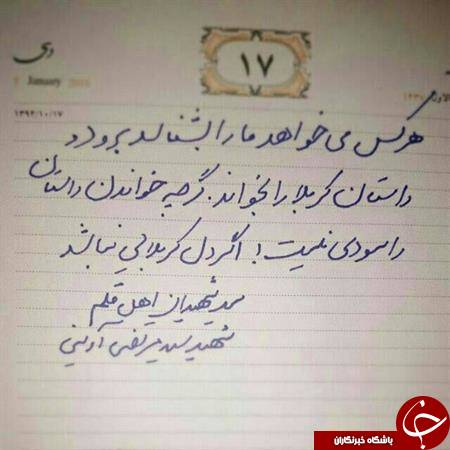 دی
۱۷
7 January
۱۳۹۴/۱۰/۱۷
هرکس می‌خواهد ما را بشناسد برود و
داستان کربلا را بخواند. گرچه خواندن داستان
را سودی نیست؛ اگر دل کربلایی نباشد
سید شهیدان اهل قلم
شهید سید مرتضی آوینی
باشگاه خبرنگاران